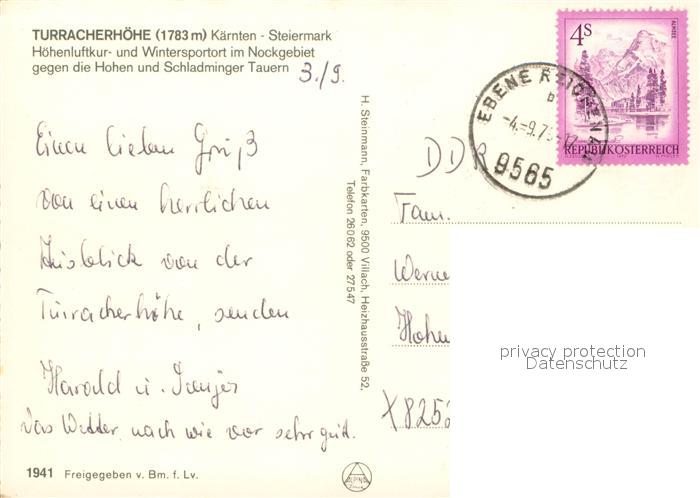 TURRACHERHÖHE (1783 m) Kärnten - Steiermark
Höhenluftkur- und Wintersportort im Nockgebiet
gegen die Hohen und Schladminger Tauern
3./9.
Einen lieben Gruß
von einen herrlichen
Ausblick von der
Turracherhöhe, senden
Harald u.
Das Wetter nach wie vor sehr gut.
1941 Freigegeben v. Bm. f. Lv.
H. Steinmann, Farbkarten, 9500 Villach, Heizhausstraße 52,
Telefon 26062 oder 27547
ALPINA
4S
ALMSEE
REPUBLIK ÖSTERREICH
EBENE REICHENAU
b
-4.-9.7
9565
DDR
Fam.
Werne
Hohen
X825
privacy protection
Datenschutz